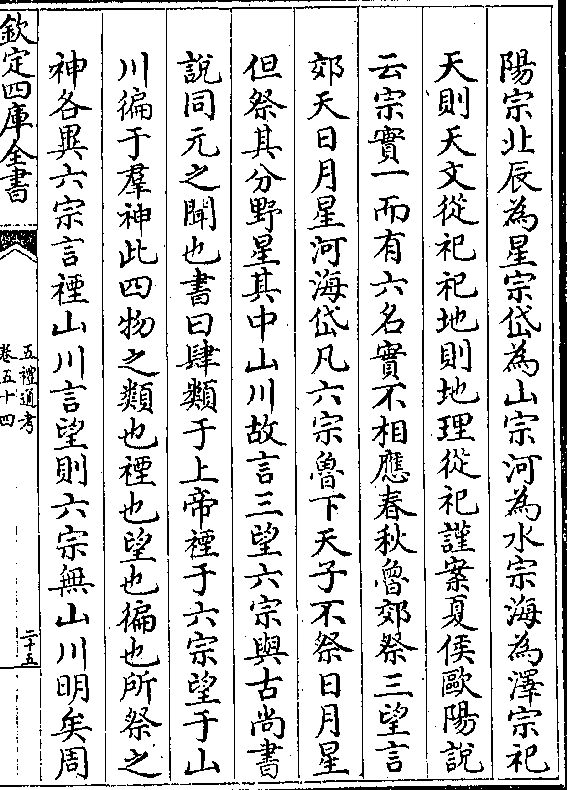 陽宗北辰為星宗岱為山宗河為水宗海為澤宗祀
天則天文從祀祀地則地理從祀謹案夏侯歐陽說
云宗實一而有六名實不相應春秋魯郊祭三望言
郊天日月星河海岱凡六宗魯下天子不祭日月星
但祭其分野星其中山川故言三望六宗與古尚書
說同元之聞也書曰肆類于上帝禋于六宗望于山
川徧于羣神此四物之類也禋也望也徧也所祭之
神各異六宗言禋山川言望則六宗無山川明矣周
欽定四庫全書
五禮通考
卷五十四
二十五